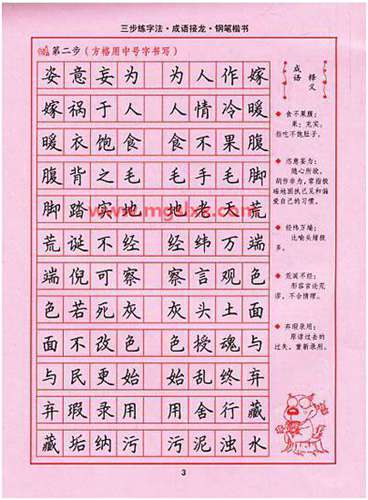 三步练字法·成语接龙·钢笔楷书
第二步（方格用中号字书写）
姿意妄为 为人作嫁
嫁祸于人 人情冷暖
暖衣饱食 食不果腹
腹背之毛 毛手毛脚
脚踏实地 地老天荒
荒诞不经 经纬万端
端倪可察 察言观色
色若死灰 灰头土面
面不改色 色授魂与
与民更始 始乱终弃
弃瑕录用 用舍行藏
藏垢纳污 污泥浊水
成语释义
食不果腹：
果：充实。
指吃不饱肚子。
恣意妄为：
随心所欲，
胡作非为。常指极
端地固执己见和偏
爱自己的习惯。
经纬万端：
比喻头绪很
多。
荒诞不经：
形容言论荒
谬，不合情理。
弃瑕录用：
原谅过去的
过失，重新录用。
3